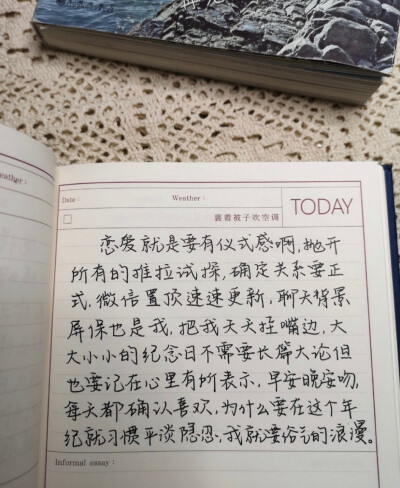 eather:
Date: Weather:
裹着被子吹空调
TODAY
恋爱就是要有仪式感啊,抛开
所有的推拉试探,确定关系要正
式,微信置顶速速更新,聊天背景
屏保也是我,把我天天挂嘴边,大
大小小的纪念日不需要长篇大论但
也要记在心里有所表示,早安晚安吻,
每天都确认喜欢,为什么要在这个年
纪就习惯平淡隐忍,我就要俗气的浪漫。
Informal essay: